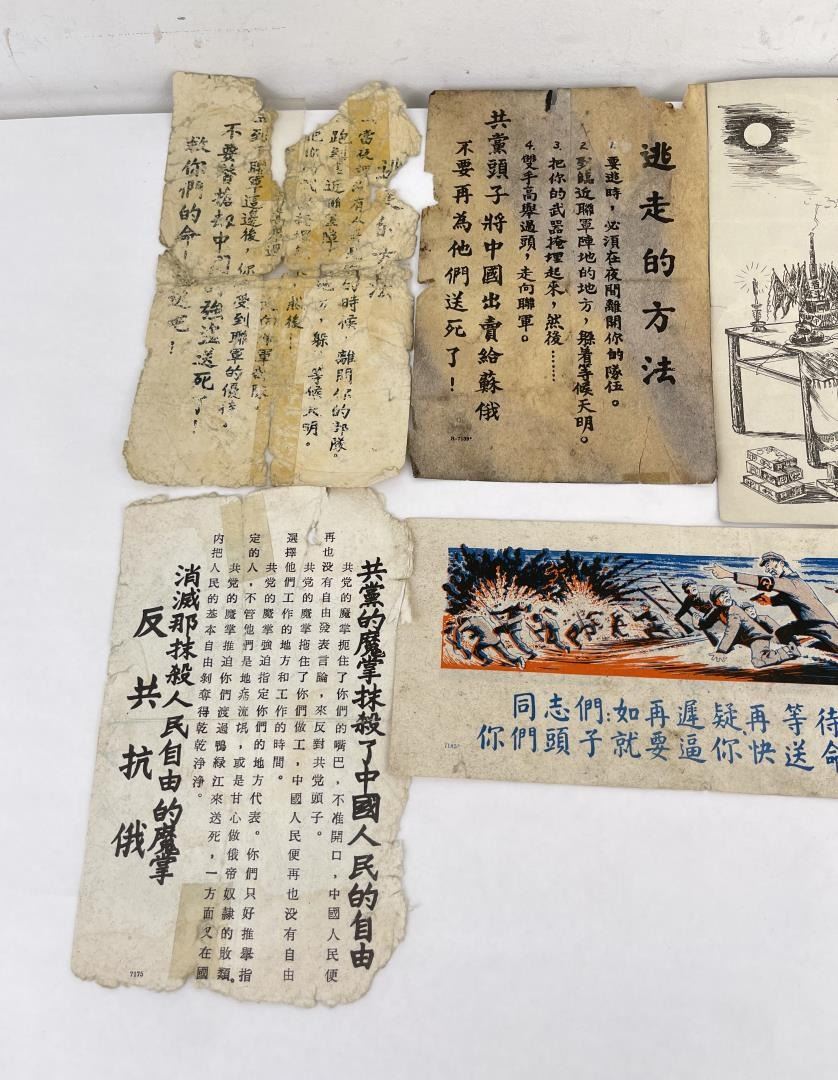 的方法
當夜裡 有人 的時候，離開你的部隊。
跑到 近聯軍陣 地方，躲 等候天明。
把你 武 ，然後…
向聯軍部隊。
到 聯軍這邊後，你 受到聯軍的優待。
不要替搶劫中國 強盜送死了！
救你們的命！ 逃吧！
逃走的方法
1. 要逃時，必須在夜間離開你的隊伍。
2. 到臨近聯軍陣地的地方，躲着等候天明。
3. 把你的武器掩埋起來，然後……
4. 雙手高舉過頭，走向聯軍。
共黨頭子將中國出賣給蘇俄
不要再為他們送死了！
共黨的魔掌抹殺了中國人民的自由
共党的魔掌扼住了你們的嘴巴，不准開口，中國人民便
再也没有自由發表言論，來反對共党頭子。
共党的魔掌拖住了你們做工，中國人民便再也没有自由
選擇他們工作的地方和工作的時間。
共党的魔掌強迫指定你們的地方代表。你們只好推舉指
定的人，不管他們是地痞流氓，或是甘心做俄帝奴隷的敗類。
共党的魔掌推迫你們渡過鴨緑江來送死，一方面又在國
内把人民的基本自由剝奪得乾乾淨淨。
消滅那抹殺人民自由的魔掌
反共抗俄
7175
同志們：如再遲疑再等待
你們頭子就要逼你快送命